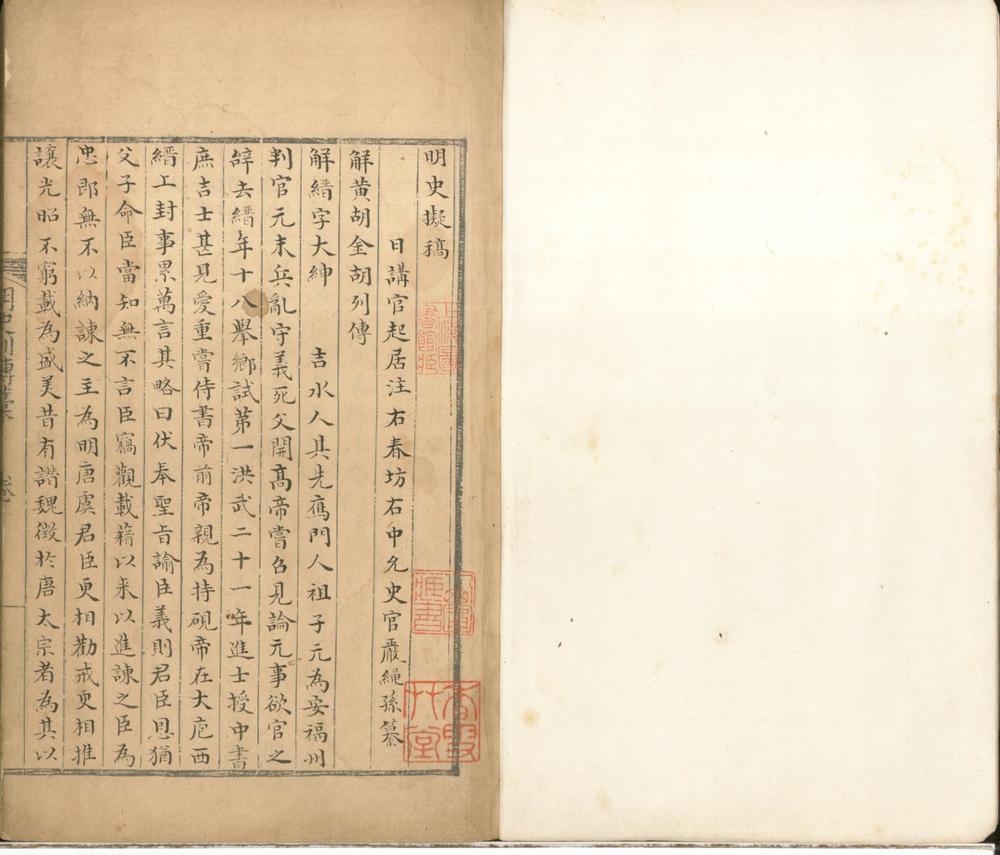 明史擬稿
日講官起居注右春坊右中允史官嚴繩孫纂
解黃胡金胡列傳
解縉字大紳　吉水人其先鴈門人祖子元為安福州
判官元末兵亂守義死父開高帝嘗召見論元事欲官之
辭去縉年十八舉鄉試第一洪武二十一年進士授中書
庶吉士甚見愛重嘗侍書帝前帝親為持硯帝在大庖西
縉上封事累萬言其略曰伏奉聖旨諭臣義則君臣恩猶
父子命臣當知無不言臣竊觀載藉以来以進諫之臣為
忠郎無不以納諫之主為明唐虞君臣更相勸戒更相推
讓光昭不窮載為盛美昔有譖魏徵於唐太宗者為其以
明史列傳藁
卷